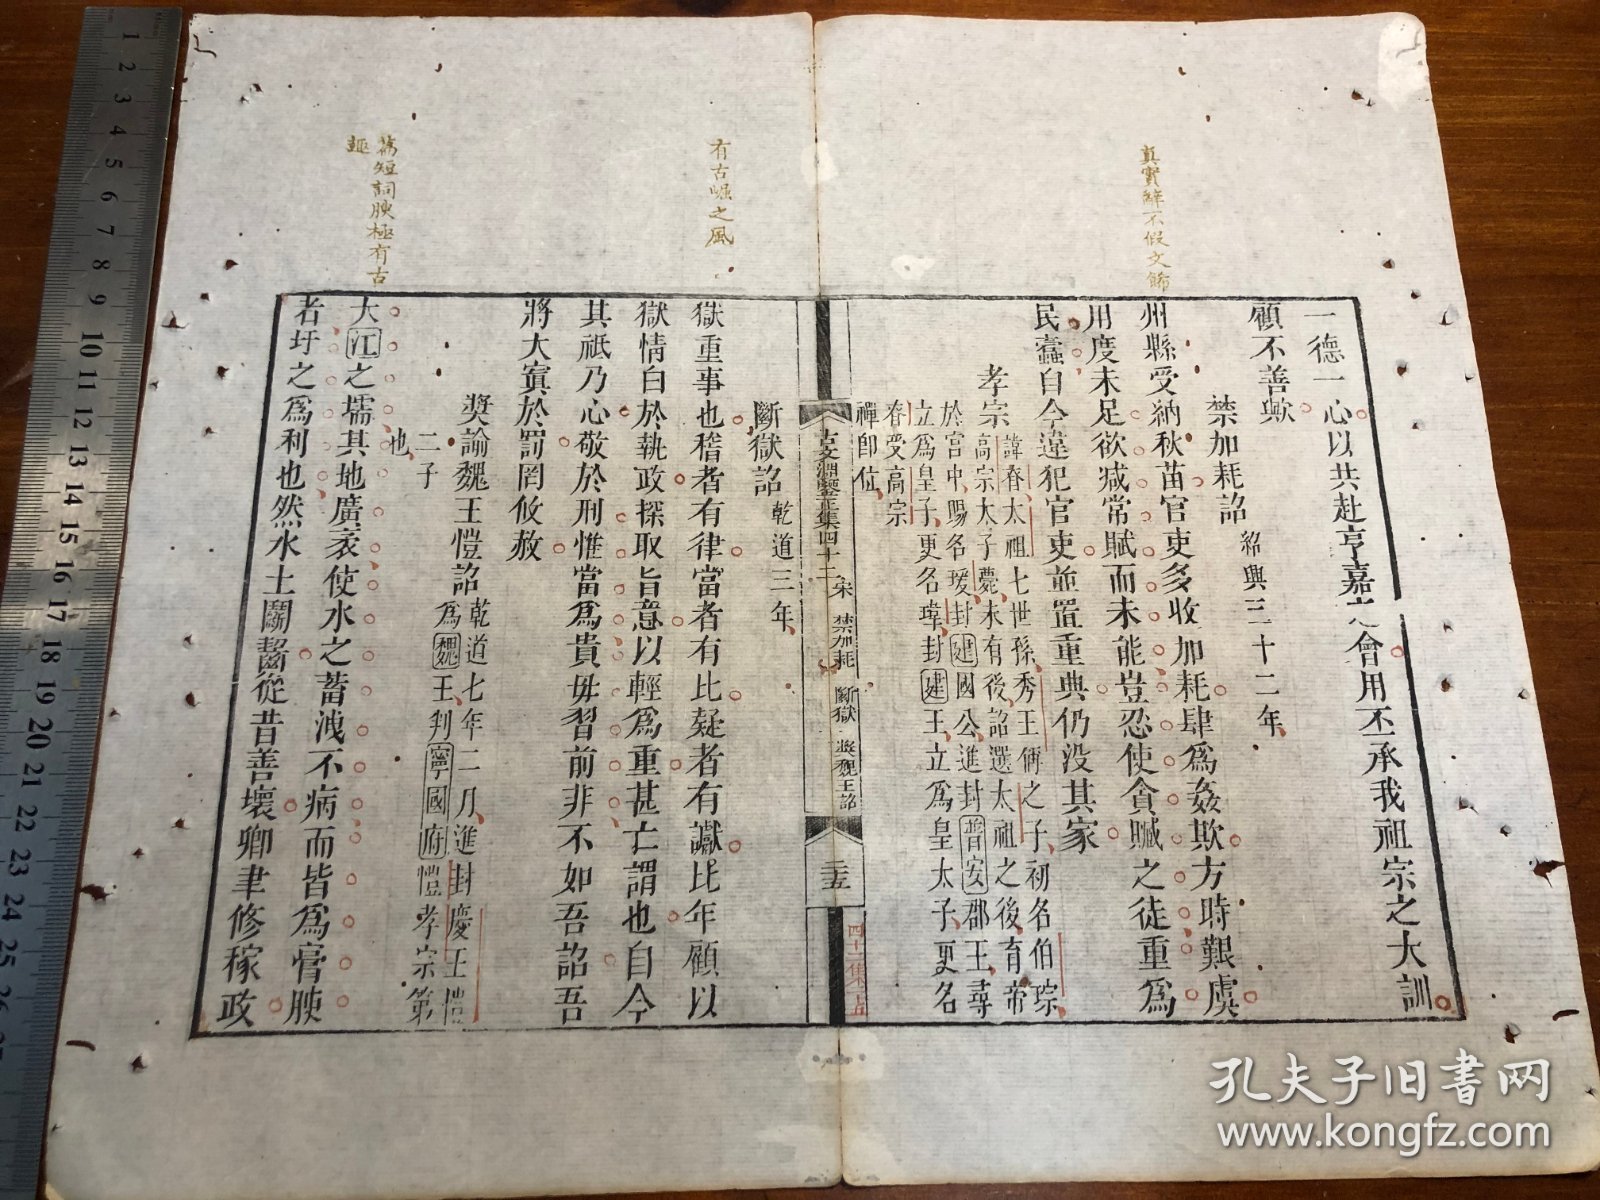 真實辭不假文飾
一德一心以共赴亨嘉之會用丕承我祖宗之大訓
顧不善歟
禁加耗詔紹興三十二年
州縣受納秋苗官吏多收加耗肆為姦欺方時艱虞
用度未足欲減常賦而未能豈忍使貪贓之徒重為
民蠹自今違犯官吏並置重典仍没其家
孝宗
諱眘太祖七世孫秀王偁之子初名伯琮
高宗太子薨未有後詔選太祖之後育帝
於宮中賜名瑗封建國公進封普安郡王尋
立為皇子更名瑋封建王立為皇太子更名
眘受高宗
禪即位
古文淵鑒正集四十二 宋 禁加耗 斷獄 奬魏王詔
三十五
四十二集 五
有古崛之風
斷獄詔乾道三年
獄重事也稽者有律當者有比疑者有讞比年顧以
獄情白於執政探取旨意以輕為重甚亡謂也自今
其祇乃心敬於刑惟當為貴毋習前非不如吾詔吾
將大寘於罰罔攸赦
奬諭魏王愷詔
乾道七年二月進封慶王愷
為魏王判寧國府愷孝宗第
二子
也
篇短詞腴極有古
趣
大江之壖其地廣袤使水之蓄洩不病而皆為膏腴
者圩之為利也然水土鬭齧從昔善壞卿聿修稼政
孔夫子旧书网
www.kongfz.com
1
2
3
4
5
6
7
8
9
10
11
12
13
14
15
16
17
18
19
20
21
22
23
24
25
26